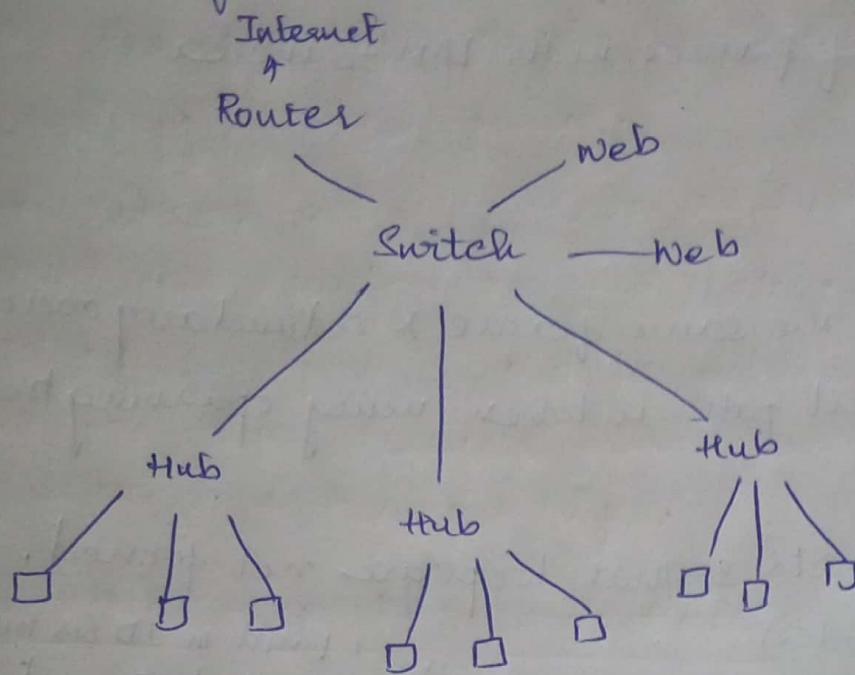 Internet
Router
Web
Switch
Web
Hub
Hub
Hub